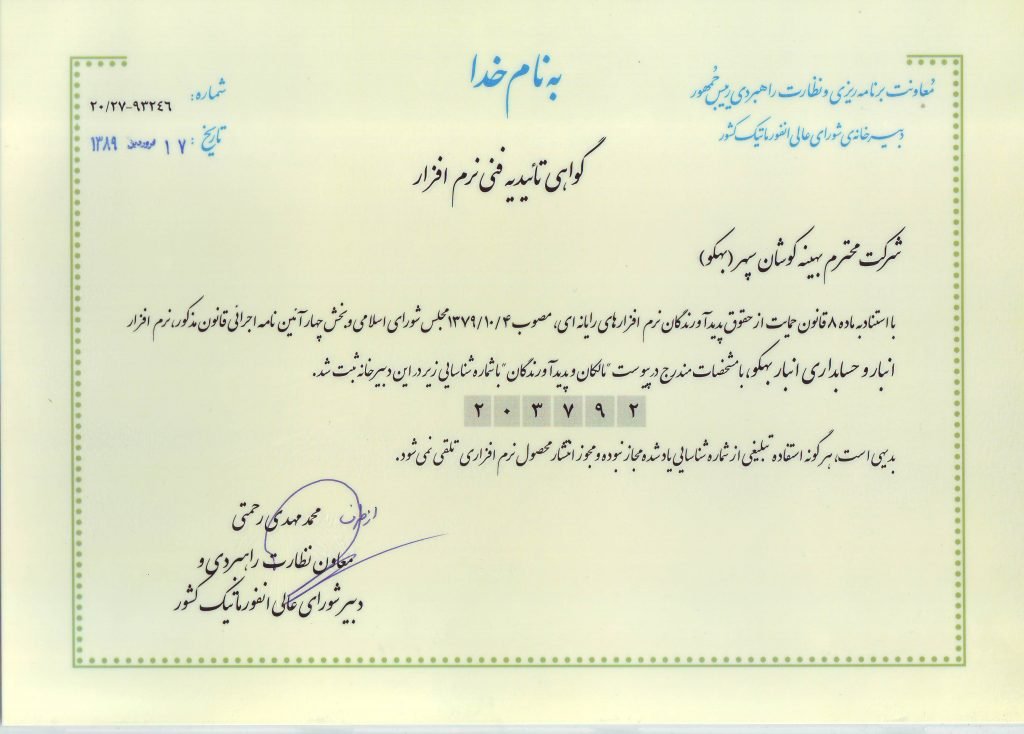 به نام خدا
معاونت برنامه ریزی و نظارت راهبردی رییس جمهور
دبیرخانه‌ی شورای عالی انفورماتیک کشور
شماره: ۲۰/۲۷-۹۳۲٤٦
تاریخ: ۱۷ فروردین ۱۳۸۹
گواهی تائیدیه فنی نرم افزار
شرکت محترم بهینه کوشان سپهر (بهکو)
با استناد به ماده ۸ قانون حمایت از حقوق پدیدآورندگان نرم افزارهای رایانه ای، مصوب ۱۳۷۹/۱۰/۴ مجلس شورای اسلامی و بخش چهار آئین نامه اجرائی قانون مذکور، نرم افزار
انبار و حسابداری انبار بهکو، با مشخصات مندرج در پیوست "مالکان و پدیدآورندگان" با شماره شناسایی زیر در این دبیرخانه ثبت شد.
۲۰۳۷۹۲
بدیهی است، هرگونه استفاده تبلیغی از شماره شناسایی یاد شده مجاز نبوده و مجوز انتشار محصول نرم افزاری تلقی نمی شود.
از طرف محمد مهدی رحمتی
معاون نظارت راهبردی و
دبیر شورای عالی انفورماتیک کشور